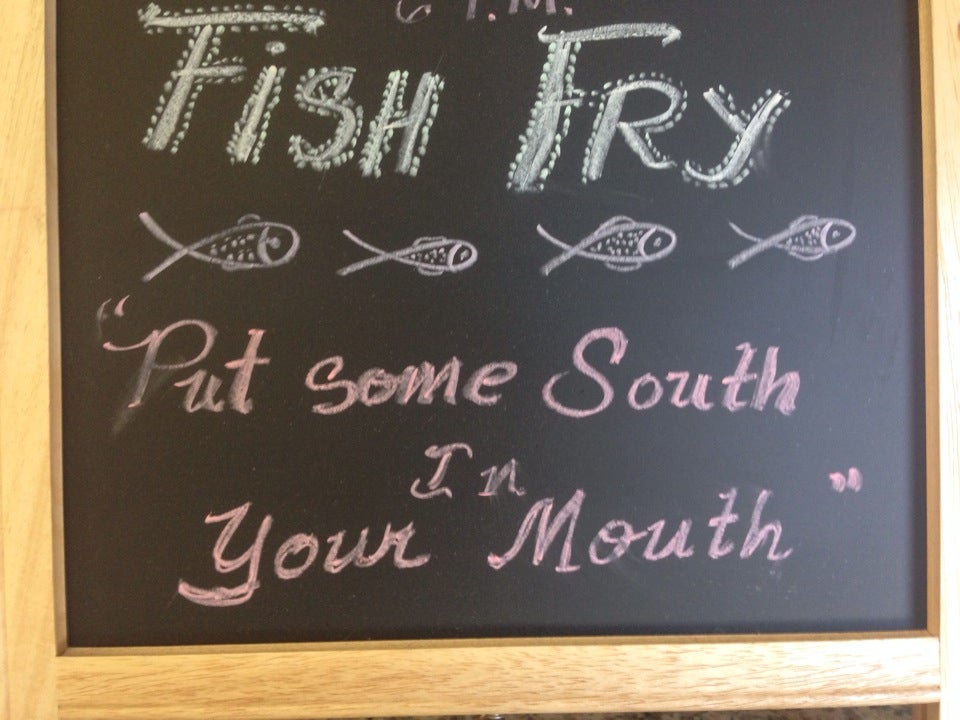 6 P.M.
Fish Fry
"Put some South
In
Your Mouth"